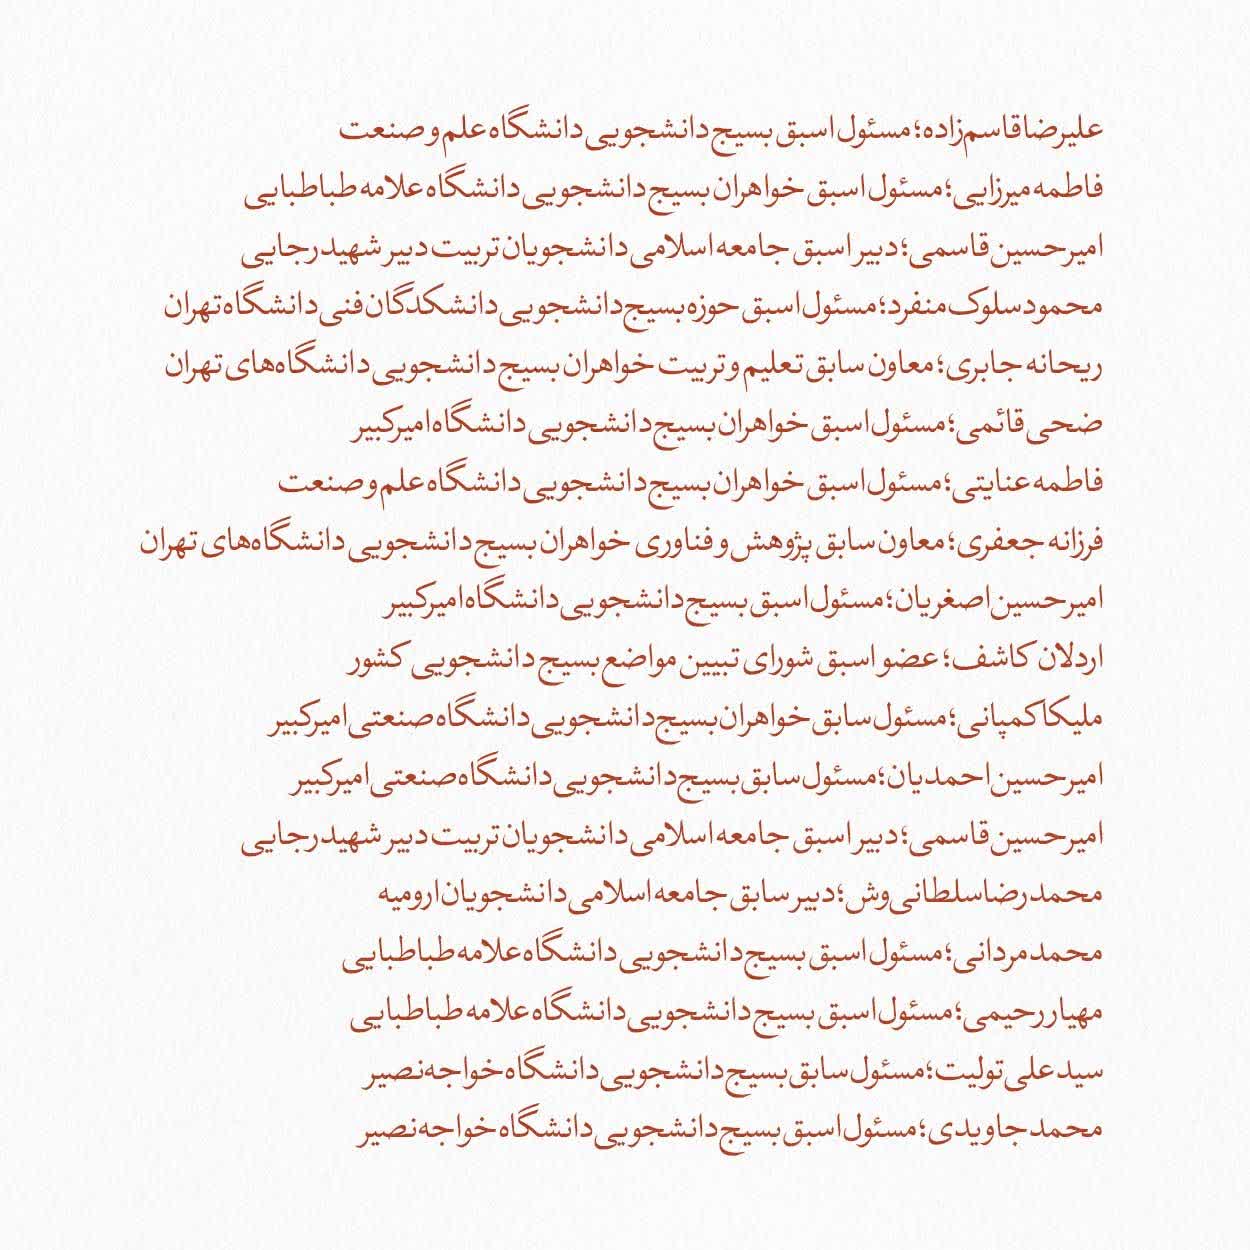 علیرضا قاسم‌زاده؛ مسئول اسبق بسیج دانشجویی دانشگاه علم و صنعت
فاطمه میرزایی؛ مسئول اسبق خواهران بسیج دانشجویی دانشگاه علامه طباطبایی
امیرحسین قاسمی؛ دبیر اسبق جامعه اسلامی دانشجویان تربیت دبیر شهید رجایی
محمود سلوک منفرد؛ مسئول اسبق حوزه بسیج دانشجویی دانشکدگان فنی دانشگاه تهران
ریحانه جابری؛ معاون سابق تعلیم و تربیت خواهران بسیج دانشجویی دانشگاه‌های تهران
ضحی قائمی؛ مسئول اسبق خواهران بسیج دانشجویی دانشگاه امیرکبیر
فاطمه عنایتی؛ مسئول اسبق خواهران بسیج دانشجویی دانشگاه علم و صنعت
فرزانه جعفری؛ معاون سابق پژوهش و فناوری خواهران بسیج دانشجویی دانشگاه‌های تهران
امیرحسین اصغریان؛ مسئول اسبق بسیج دانشجویی دانشگاه امیرکبیر
اردلان کاشف؛ عضو اسبق شورای تبیین مواضع بسیج دانشجویی کشور
ملیکا کمپانی؛ مسئول سابق خواهران بسیج دانشجویی دانشگاه صنعتی امیرکبیر
امیرحسین احمدیان؛ مسئول سابق بسیج دانشجویی دانشگاه صنعتی امیرکبیر
امیرحسین قاسمی؛ دبیر اسبق جامعه اسلامی دانشجویان تربیت دبیر شهید رجایی
محمدرضا سلطانی‌وش؛ دبیر سابق جامعه اسلامی دانشجویان ارومیه
محمد مردانی؛ مسئول اسبق بسیج دانشجویی دانشگاه علامه طباطبایی
مهیار رحیمی؛ مسئول اسبق بسیج دانشجویی دانشگاه علامه طباطبایی
سید علی تولیت؛ مسئول سابق بسیج دانشجویی دانشگاه خواجه‌نصیر
محمد جاویدی؛ مسئول اسبق بسیج دانشجویی دانشگاه خواجه‌نصیر